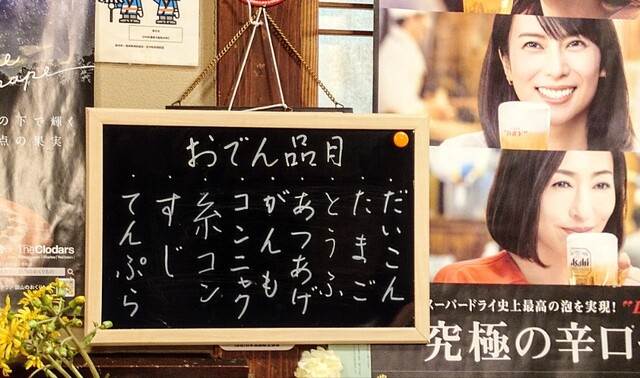 おでん品目
・だいこん
・たまご
・とうふ
・あつあげ
・がんも
・コンニャク
・糸コン
・すじ
・てんぷら
の下で輝く
点の果実
TheClodars
スーパードライ史上最高の泡を実現!
究極の辛口
Asahi